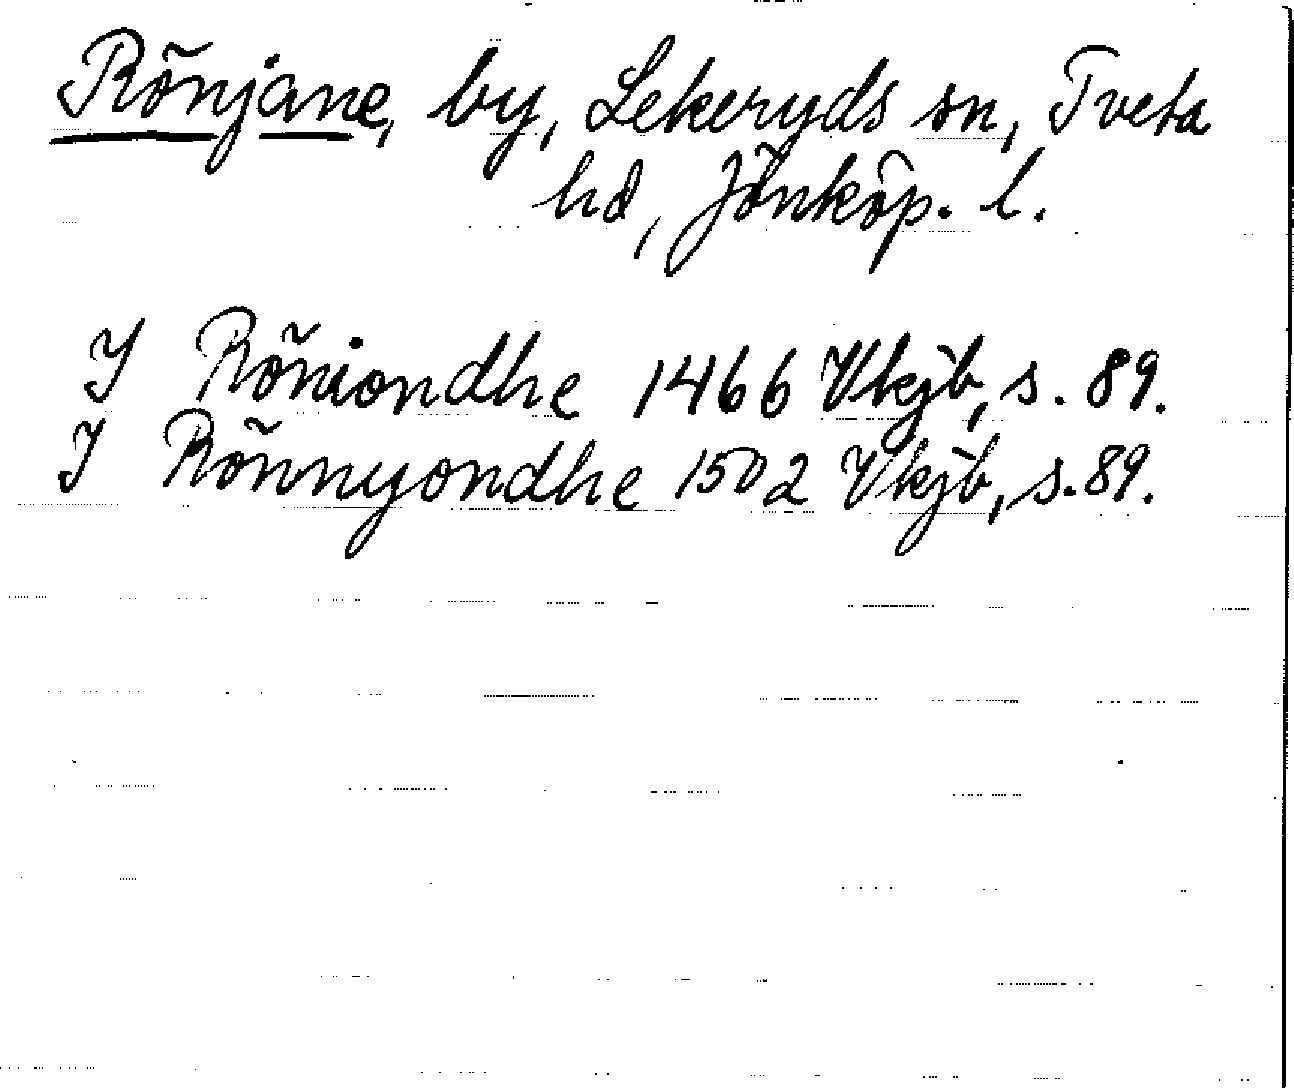 Rönjane, by, Lekeryds sn, Tveta
hd, Jönköp. l.
I Röniondhe 1466 Vkjb, s. 89.
I Rönnyondhe 1502 Vkjb, s. 89.